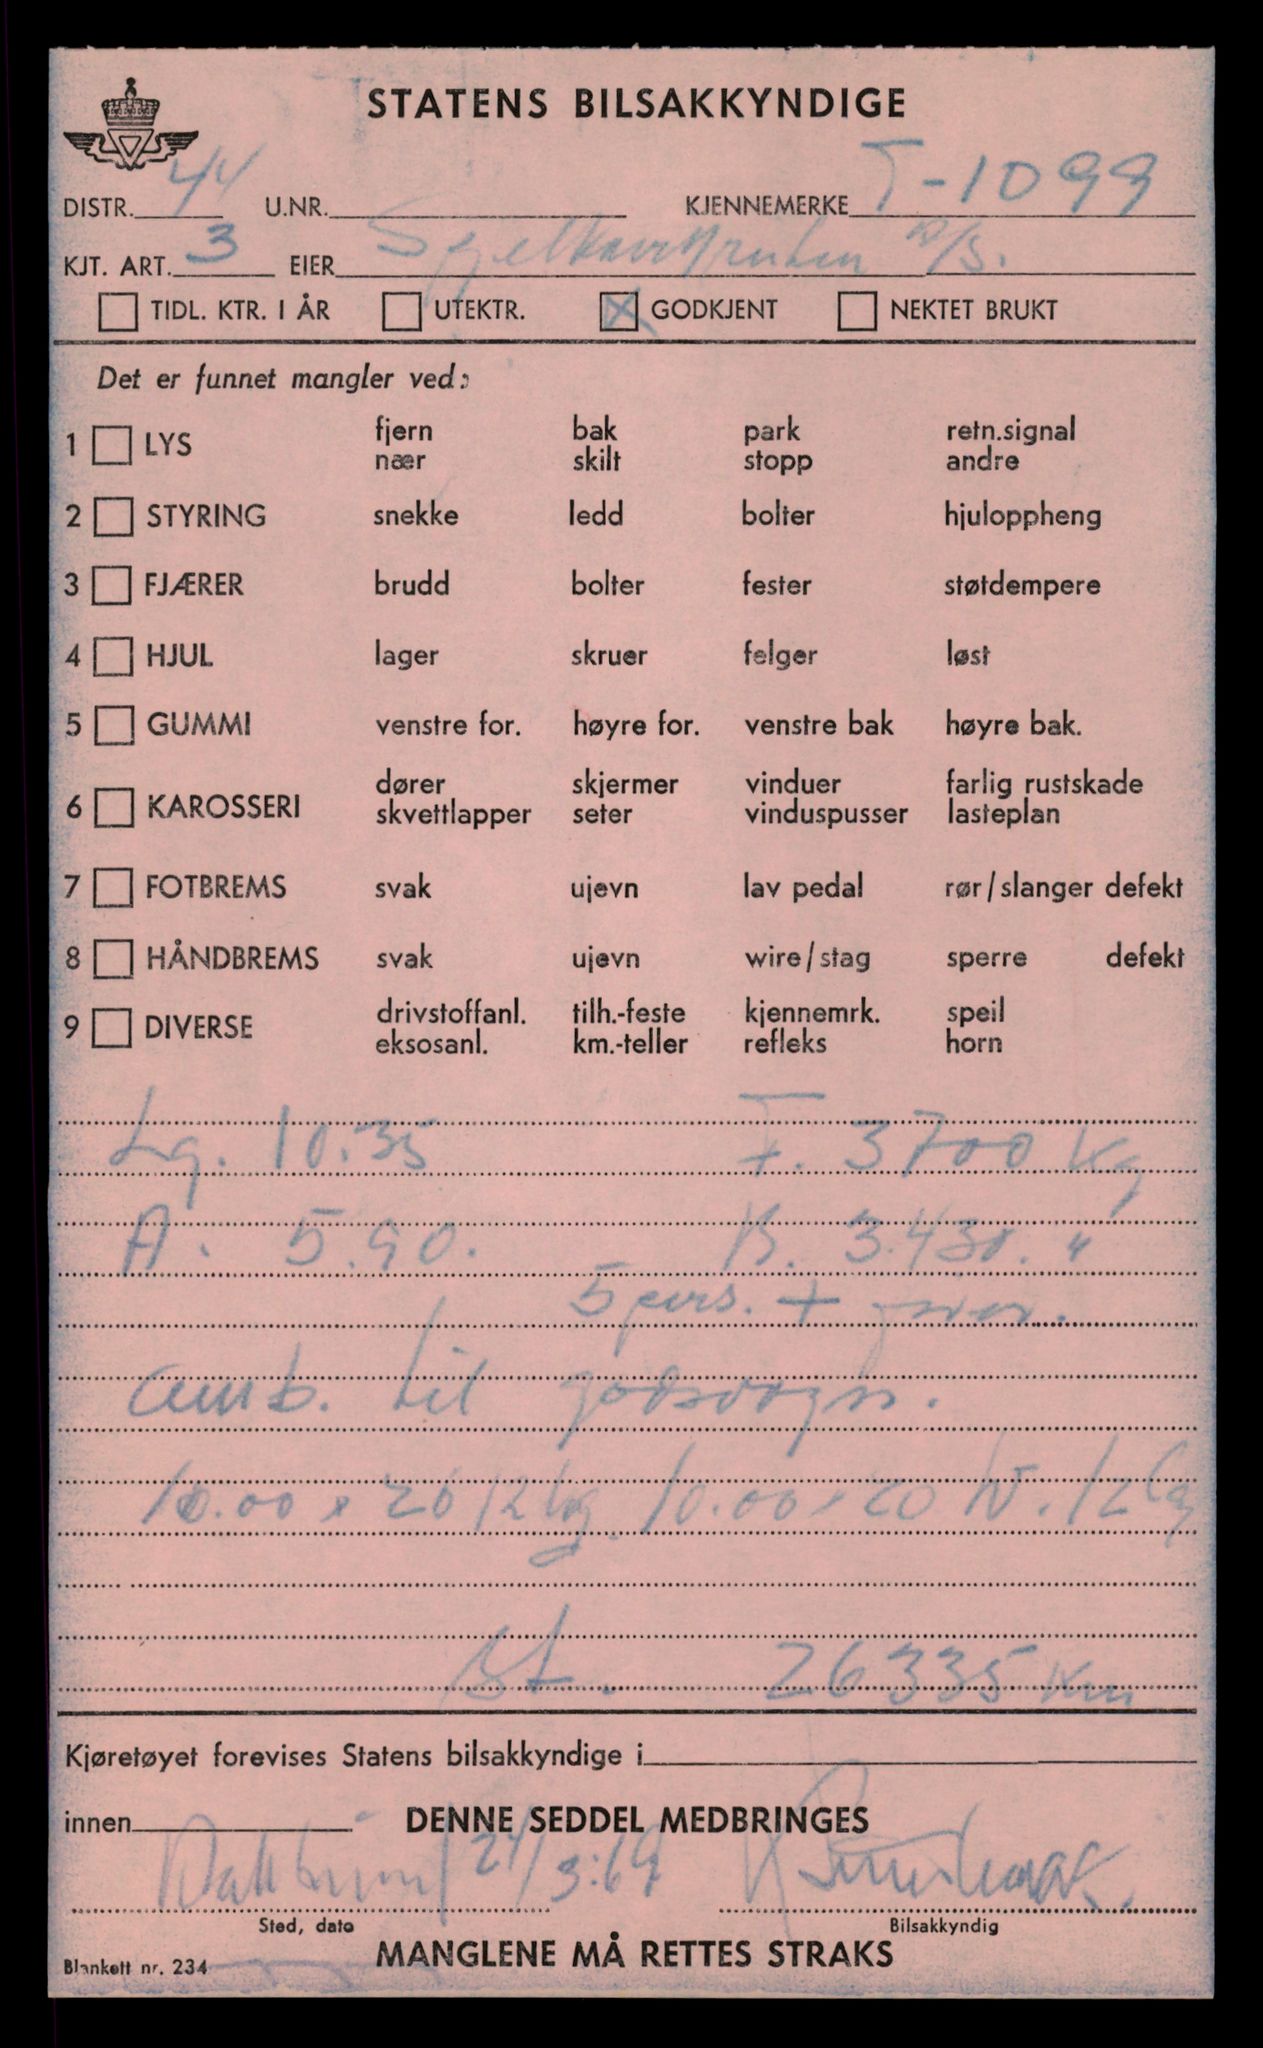 STATENS BILSAKKYNDIGE
DISTR. 44 U.NR. KJENNEMERKE T-1099
KJT. ART. 3 EIER A/S.
TIDL. KTR. I ÅR UTEKTR. X GODKJENT NEKTET BRUKT
Det er funnet mangler ved:
1 LYS fjern bak park retn.signal
nær skilt stopp andre
2 STYRING snekke ledd bolter hjuloppheng
3 FJÆRER brudd bolter fester støtdempere
4 HJUL lager skruer felger løst
5 GUMMI venstre for. høyre for. venstre bak høyre bak.
6 KAROSSERI dører skjermer vinduer farlig rustskade
skvettlapper seter vinduspusser lasteplan
7 FOTBREMS svak ujevn lav pedal rør/slanger defekt
8 HÅNDBREMS svak ujevn wire/stag sperre defekt
9 DIVERSE drivstoffanl. tilh.-feste kjennemrk. speil
eksosanl. km.-teller refleks horn
Lg. 10.35 F. 3700 kg
A. 5.90. B. 3.430. "
5 pers. + fører.
omb. til godsvogn.
10.00 x 20 12 lg. 10.00 x 20 W. 12 lg
St. 26335 km
Kjøretøyet forevises Statens bilsakkyndige i
innen DENNE SEDDEL MEDBRINGES
24/3.69
Sted, dato Bilsakkyndig
Blankett nr. 234 MANGLENE MÅ RETTES STRAKS